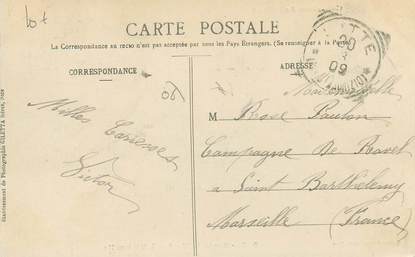 lot
CARTE POSTALE
La Correspondance au recto n'est pas acceptée par tous les Pays Etrangers. (Se renseigner à la Poste)
CORRESPONDANCE
ADRESSE
06
Milles Caresses
Victor
Mademoiselle
M Rose Paulon
Campagne De Ravel
a Saint Barthelemy
Marseille (France)
20
09
Etablissement de Photographie GILETTA frères, NICE